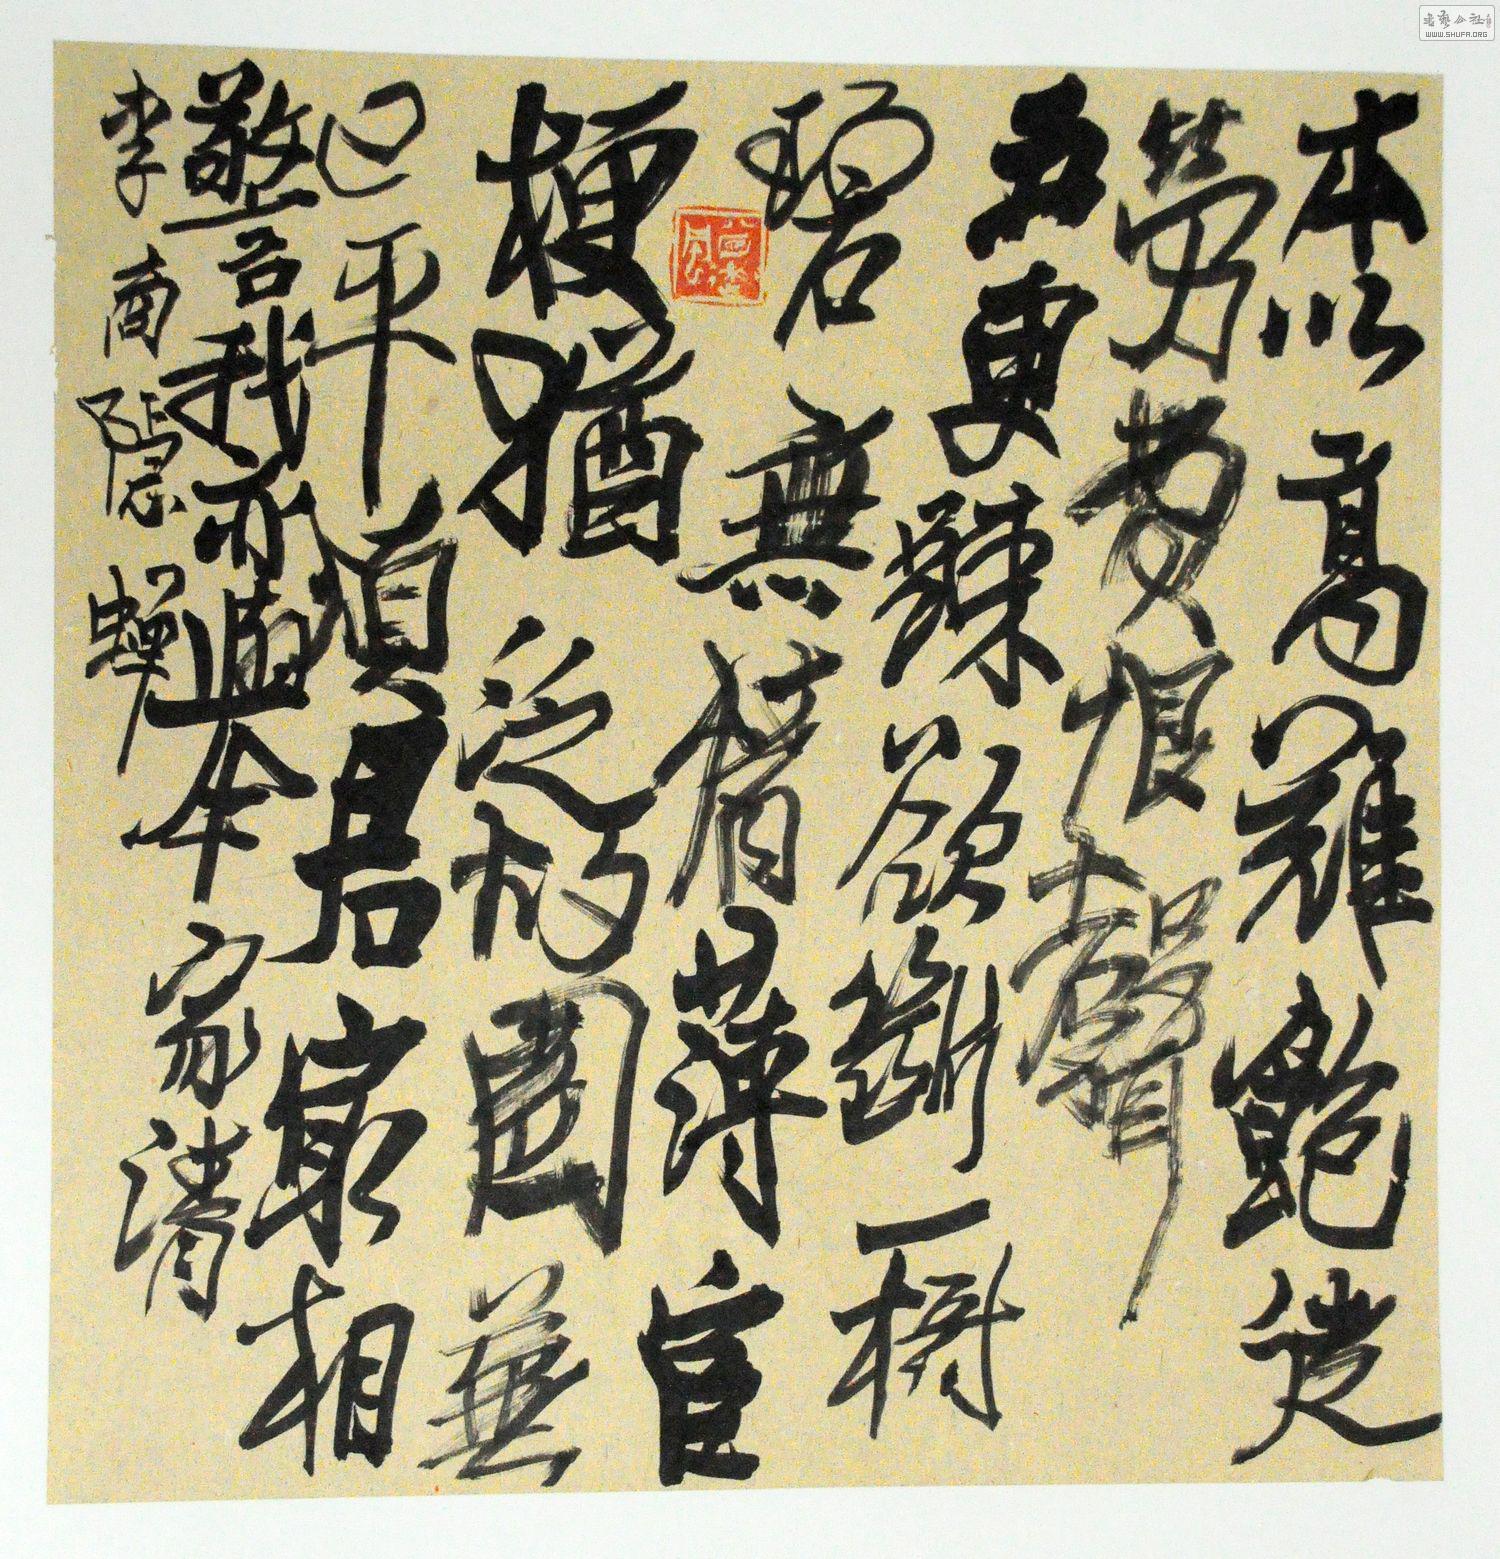 本以高難飽徒
勞費恨聲
五更踈欲斷一樹
碧無情薄宦
梗猶泛故園蕪
已平煩君最相
警我亦舉家清
李商隱蟬
WWW.SHUFA.ORG